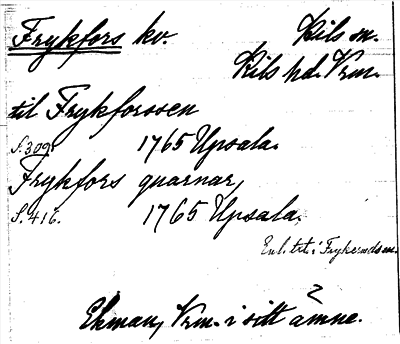 Frykfors kv. Kils sn.
Kils hd. Vrm.
til Frykforssen
S. 309. 1765 Upsala.
Frykfors quarnar,
S. 416. 1765 Upsala.
Enl. trt. i Frykeruds sn.
?
Ehman, Vrm. i sitt ämne.